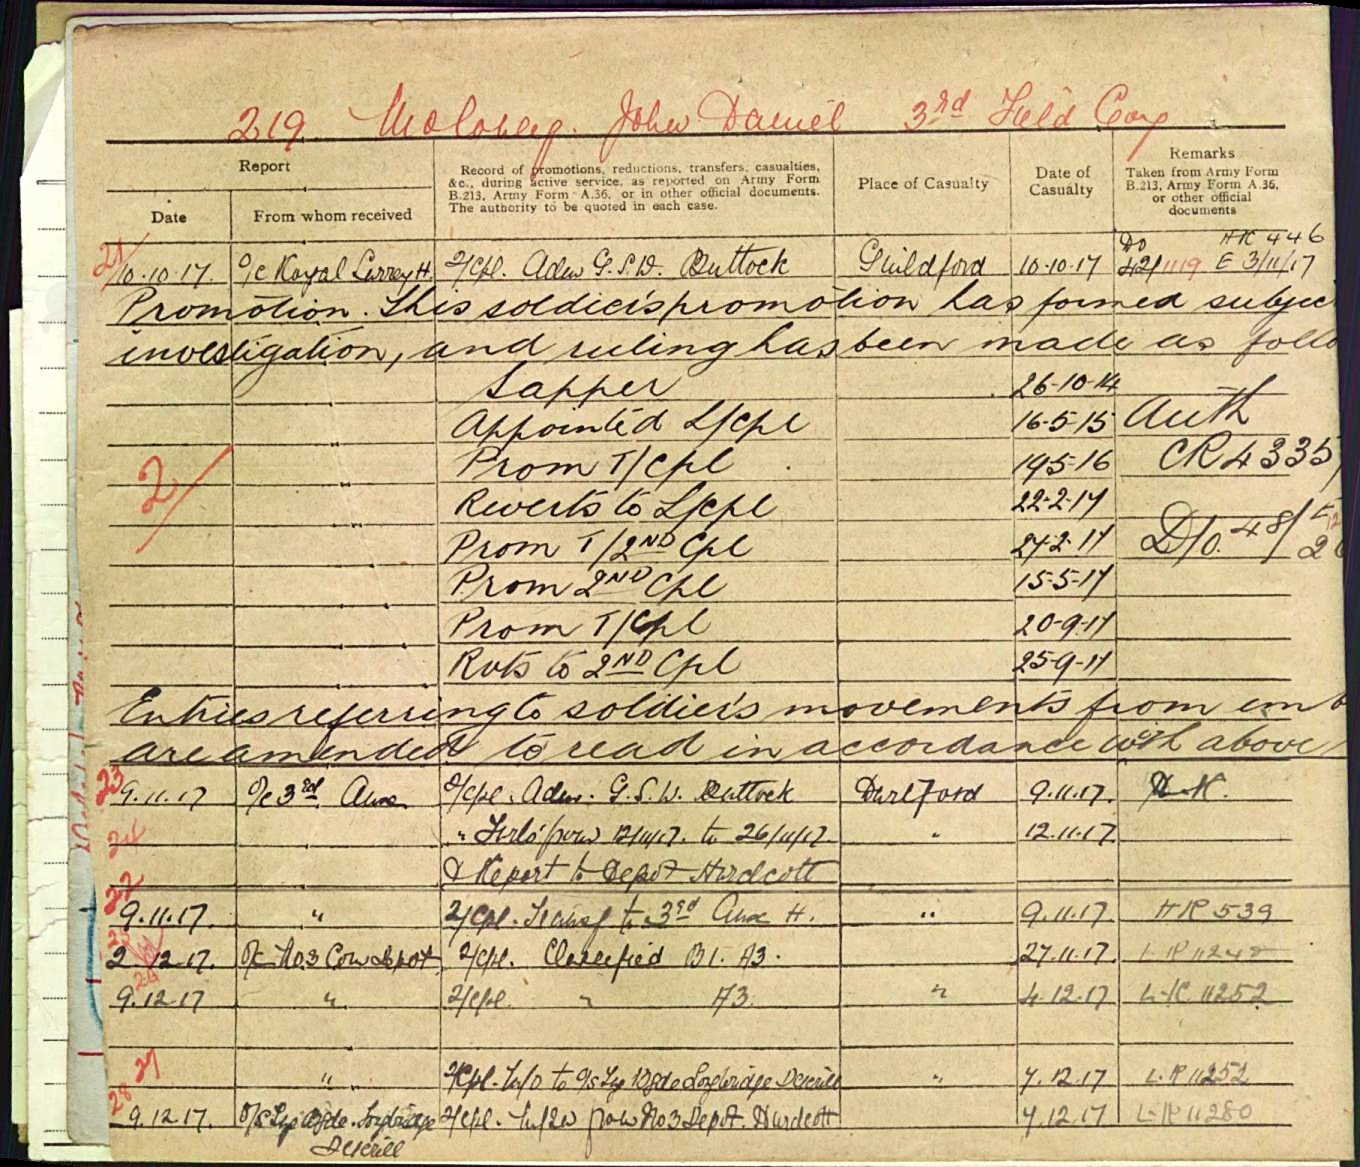 219 Moloney. John Daniel 3rd Field Coy
Report
Record of promotions, reductions, transfers, casualties, &c., during active service, as reported on Army Form B.213, Army Form A.36, or in other official documents. The authority to be quoted in each case.
Place of Casualty
Date of Casualty
Remarks
Taken from Army Form B.213, Army Form A.36, or other official documents
Date
From whom received
21/
DO HR 446
10.10.17. O/C Royal Surrey H. 2/Cpl. Adm G.S.W. Buttock Guildford 10.10.17 42/1119 E 3/11/17
Promotion. This soldier's promotion has formed subjec
investigation, and ruling has been made as follo
Sapper 26-10-14
Appointed L/Cpl 16-5-15 Auth
2/
Prom T/Cpl 19-5-16 CR 4335/
Reverts to L/Cpl 22-2-17
Prom T/2ND Cpl 27-2-17 D/o. 48/
Prom 2ND Cpl 15-5-17
Prom T/Cpl 20-9-17
Rvts to 2ND Cpl 25-9-17
Entries referring to soldier's movements from emb
are amended to read in accordance with above
23
9.11.17 O/C 3rd Aux 2/Cpl. Adm. G.S.W. Buttock Dartford 9.11.17.
24
" Furlo' from 12/11/17. to 26/11/17. " 12.11.17.
& Report to Depot Hurdcott
22
9.11.17. " 2/Cpl. Transf to 3rd Aux H. " 9.11.17. HR 539
25
2.12.17. O/C No.3 Com Depot 2/Cpl. Classified B1. A3. 27.11.17. L-R 11248
26
9.12.17 " 2/Cpl. " A3. " 4.12.17 L-R 11252
27
" 2/Cpl. M/O to O/S Trg Bgde Longbridge Deverill " 7.12.17 L.R 11252
28
9.12.17. O/S Trg Bgde. Longbridge 2/Cpl. M/In from No 3 Depot. Hurdcott 7.12.17 L-R 11280
Deverill